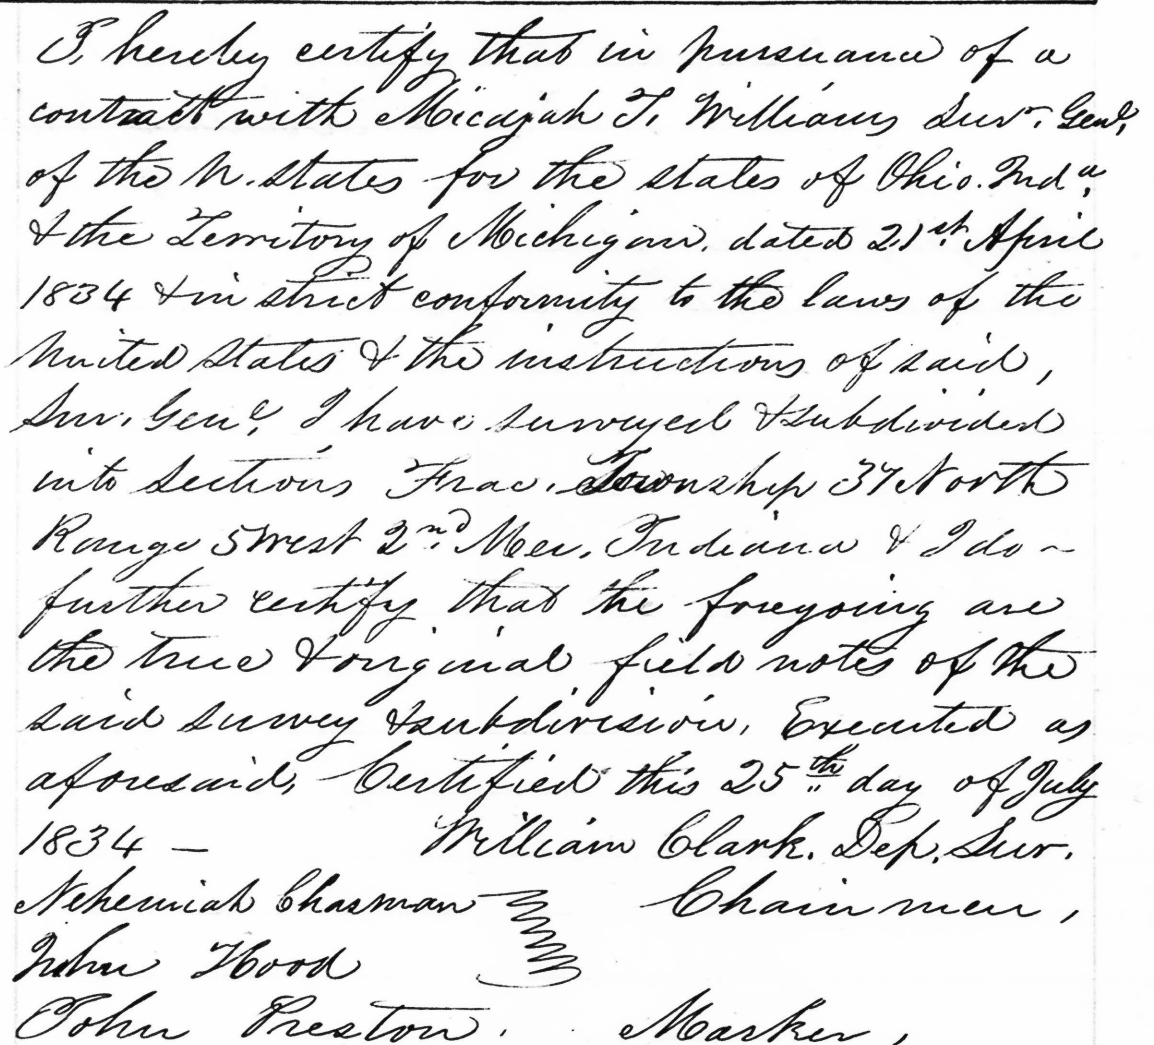 I, hereby certify that in pursuance of a
contract with Micajah T. Williams Surr. Genl.
of the U. States for the states of Ohio. Inda.
& the Territory of Michigan. dated 21st. April
1834 & in strict conformity to the laws of the
United States & the instructions of said,
Sur. Genl. I have surveyed & subdivided
into sections Frac. Township 37 North
Range 5 West 2nd. Mer. Indiana & I do ~
further certify that the foregoing are
the true & original field notes of the
said survey & subdivision, Executed as
aforesaid, Certified this 25th day of July
1834 — William Clark. Dep. Sur.
Nehemiah Chasman Chainmen,
John Hood
John Preston. Marker,